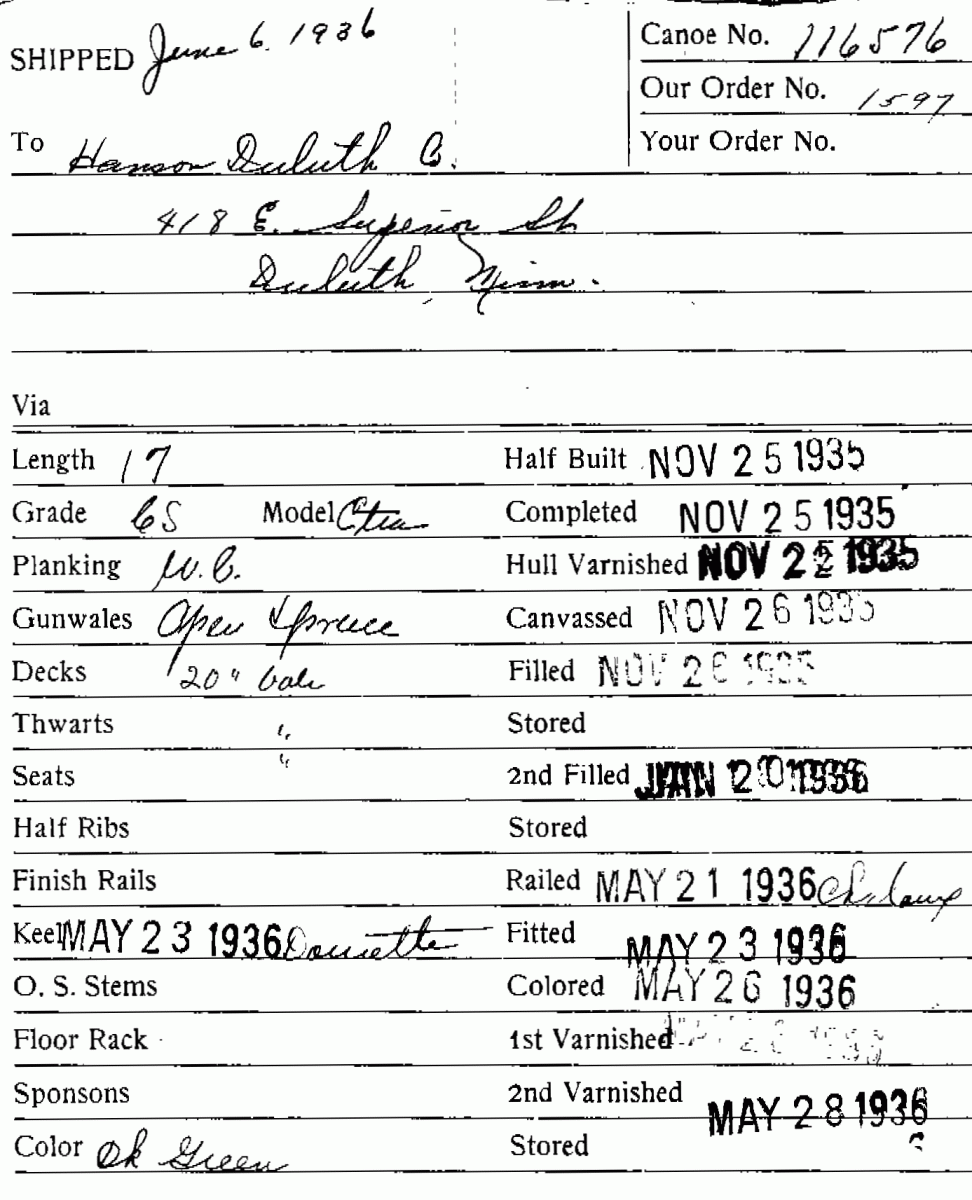 SHIPPED June 6. 1936
Canoe No. 116576
Our Order No. 1597
To Hanson Duluth Co.
Your Order No.
418 E. Superior St
Duluth, Minn.
Via
Length 17 Half Built NOV 25 1935
Grade CS Model Otca Completed NOV 25 1935
Planking W.C. Hull Varnished NOV 25 1935
Gunwales Open Spruce Canvassed NOV 26 1935
Decks 20" Oak Filled NOV 26 1935
Thwarts " Stored
Seats " 2nd Filled JAN 20 1936
Half Ribs Stored
Finish Rails Railed MAY 21 1936
Keel MAY 23 1936 Doucette Fitted MAY 23 1936
O. S. Stems Colored MAY 26 1936
Floor Rack 1st Varnished
Sponsons 2nd Varnished MAY 28 1936
Color Dk Green Stored